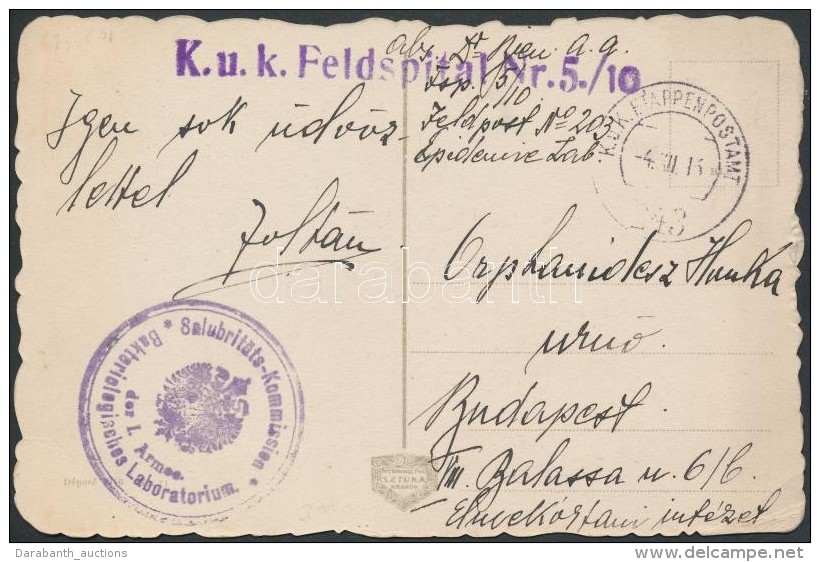 K.u.k. Feldspital Nr. 5./10
abs. Dr Bien a. g.
Fsp. 5/10
Feldpost No 203
Epidemie Lab.
K.u.K. ETAPPENPOSTAMT
-4.XII.15
Igen sok üdvöz-
lettel
Zoltán
Orphanidesz Hunka
urnő
Budapest
VIII. Balassa u. 6/b.
Elmekórtani intézet
Salubritäts-Kommission
der I. Armee.
* Bakteriologisches Laboratorium. *
SZTUKA
KRAKÓW
Déposé
darabanth
Darabanth_auctions
www.delcampe.net